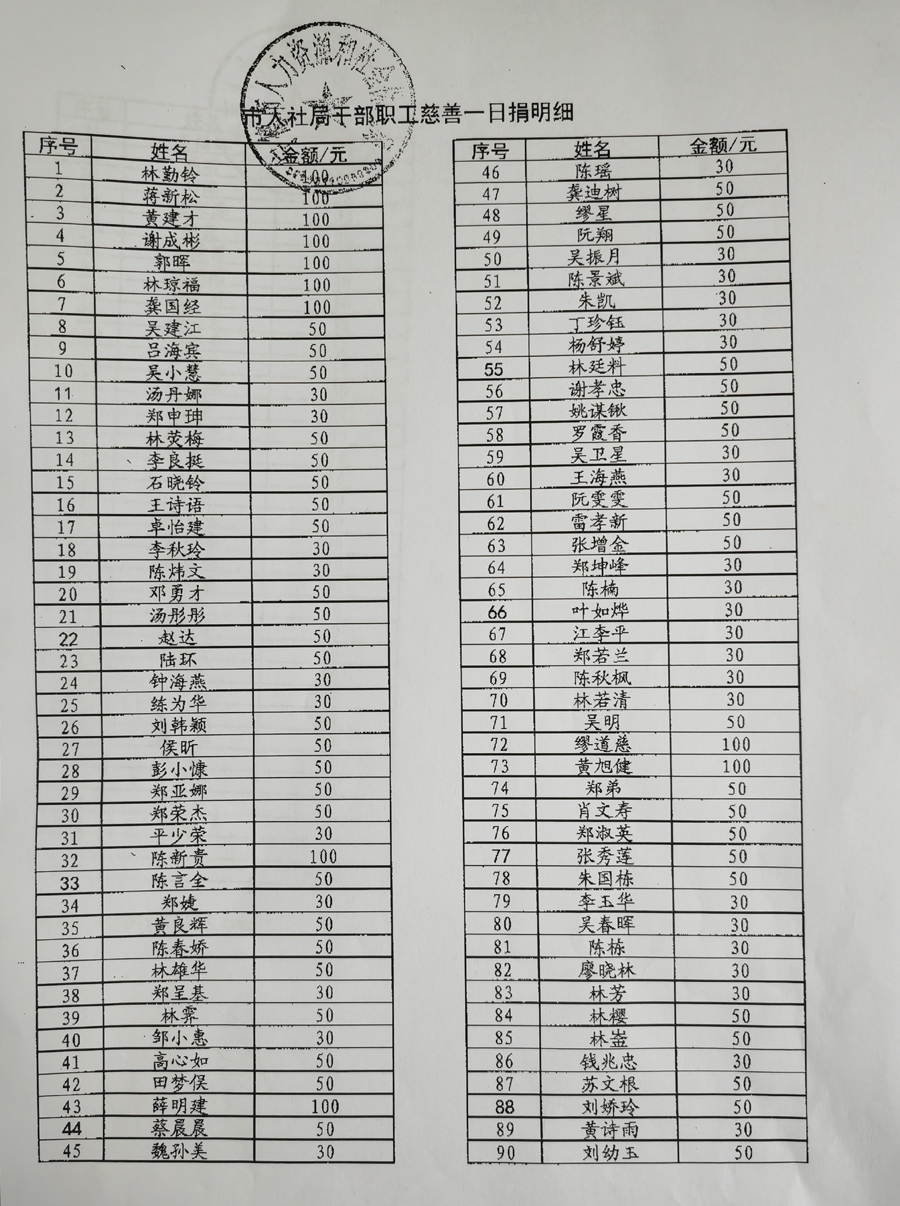 人力资源和社会
市人社局干部职工慈善一日捐明细
序号 姓名 金额/元
1 林勤铃 100
2 蒋新松 100
3 黄建才 100
4 谢成彬 100
5 郭晖 100
6 林琼福 100
7 龚国经 100
8 吴建江 50
9 吕海宾 50
10 吴小慧 50
11 汤丹娜 30
12 郑申珅 30
13 林荧梅 50
14 李良挺 50
15 石晓铃 50
16 王诗语 50
17 卓怡建 50
18 李秋玲 30
19 陈炜文 30
20 邓勇才 50
21 汤彤彤 50
22 赵达 50
23 陆环 50
24 钟海燕 30
25 练为华 30
26 刘韩颖 50
27 侯昕 50
28 彭小慷 50
29 郑亚娜 50
30 郑荣杰 50
31 平少荣 30
32 陈新贵 100
33 陈言全 50
34 郑婕 30
35 黄良辉 50
36 陈春娇 50
37 林雄华 50
38 郑呈基 30
39 林霁 50
40 邹小惠 30
41 高心如 50
42 田梦俣 50
43 薛明建 100
44 蔡晨晨 50
45 魏孙美 30
序号 姓名 金额/元
46 陈瑶 30
47 龚迪树 50
48 缪星 50
49 阮翔 50
50 吴振月 30
51 陈景斌 30
52 朱凯 30
53 丁珍钰 30
54 杨舒婷 30
55 林廷料 50
56 谢孝忠 50
57 姚谋锹 50
58 罗霞香 50
59 吴卫星 30
60 王海燕 30
61 阮雯雯 50
62 雷孝新 50
63 张增金 50
64 郑坤峰 30
65 陈楠 30
66 叶如烨 30
67 江李平 30
68 郑若兰 30
69 陈秋枫 30
70 林若清 30
71 吴明 50
72 缪道慈 100
73 黄旭健 100
74 郑弟 50
75 肖文寿 50
76 郑淑英 50
77 张秀莲 50
78 朱国栋 50
79 李玉华 30
80 吴春晖 30
81 陈栋 30
82 廖晓林 30
83 林芳 30
84 林樱 50
85 林崟 50
86 钱兆忠 30
87 苏文根 50
88 刘娇玲 50
89 黄诗雨 30
90 刘幼玉 50